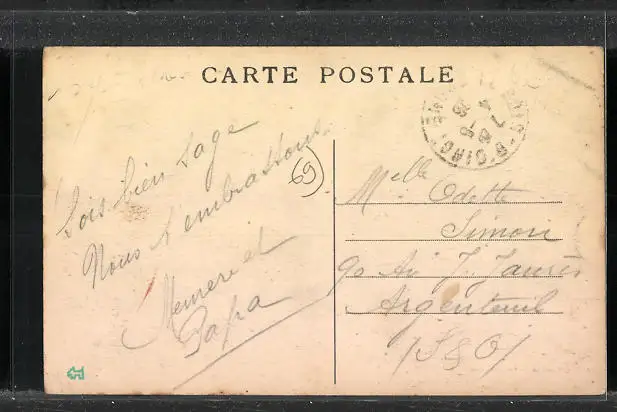 CARTE POSTALE
Sois bien sage
Nous t'embrassons
Memere et
Papa
69
Mlle Odette
Simon
90 Av J. Jaurès
Argenteuil
/S & O/